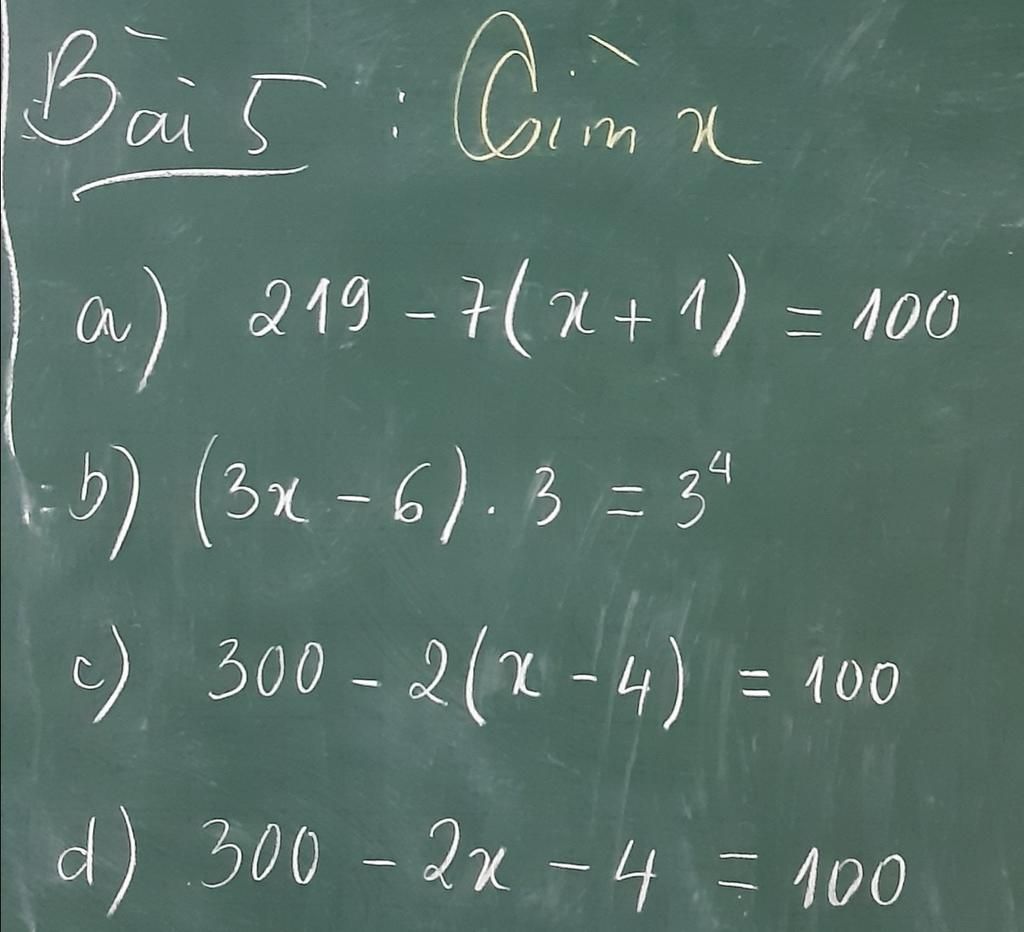 Bài 5 : Tìm x
a) 219 - 7(x + 1) = 100
b) (3x - 6) . 3 = 3⁴
c) 300 - 2(x - 4) = 100
d) 300 - 2x - 4 = 100